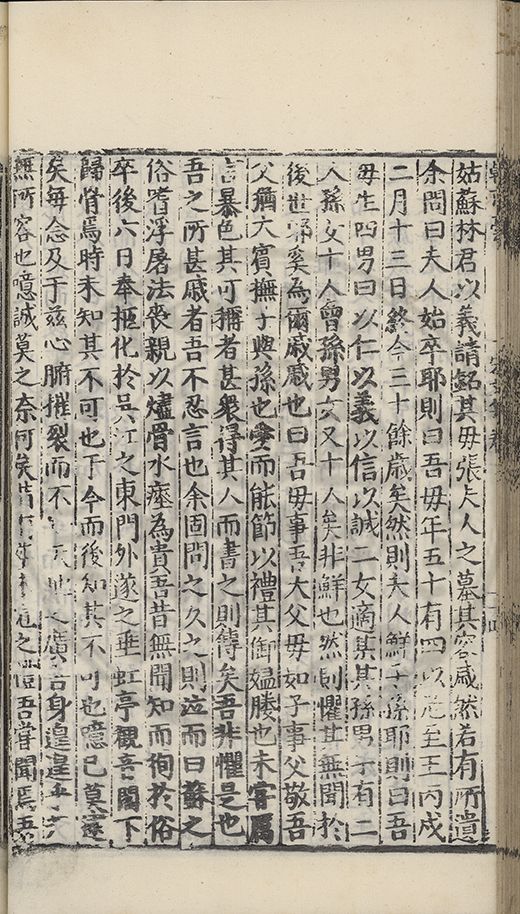 姑蘇林君以義請銘其毋張夫人之墓其容慼然若有所遺
余問曰夫人始卒耶則曰吾毋年五十有四以元至王丙戌
二月十三日終今三十餘歲矣然則夫人鮮子孫耶則曰吾
毋生四男曰以仁以義以信以誠二女適某某孫男子有二
人孫女十人曾孫男女又十人矣非鮮也然則懼其無聞於
後世邪奚為爾慼慼也曰吾毋事吾大父毋如子事父敬吾
父猶大賓撫子與孫也愛而能節以禮其御媼媵也未甞厲
言暴色其可稱者甚衆得其人而書之則傳矣吾非懼是也
吾之所甚慼者吾不忍言也余固問之久之則泣而曰蘇之
俗嗜浮屠法喪親以燼骨水瘞為貴吾昔無聞知而徇於俗
卒後六日奉柩化於吳江之東門外遂之垂虹亭觀音閣下
歸骨焉時未知其不可也于今而後知其不可也噫已莫逮
矣每念及于兹心腑摧裂而不 天地之廣吾身遑遑乎
無所容也噫誠莫之奈何矣昔 之 吾甞聞焉吾